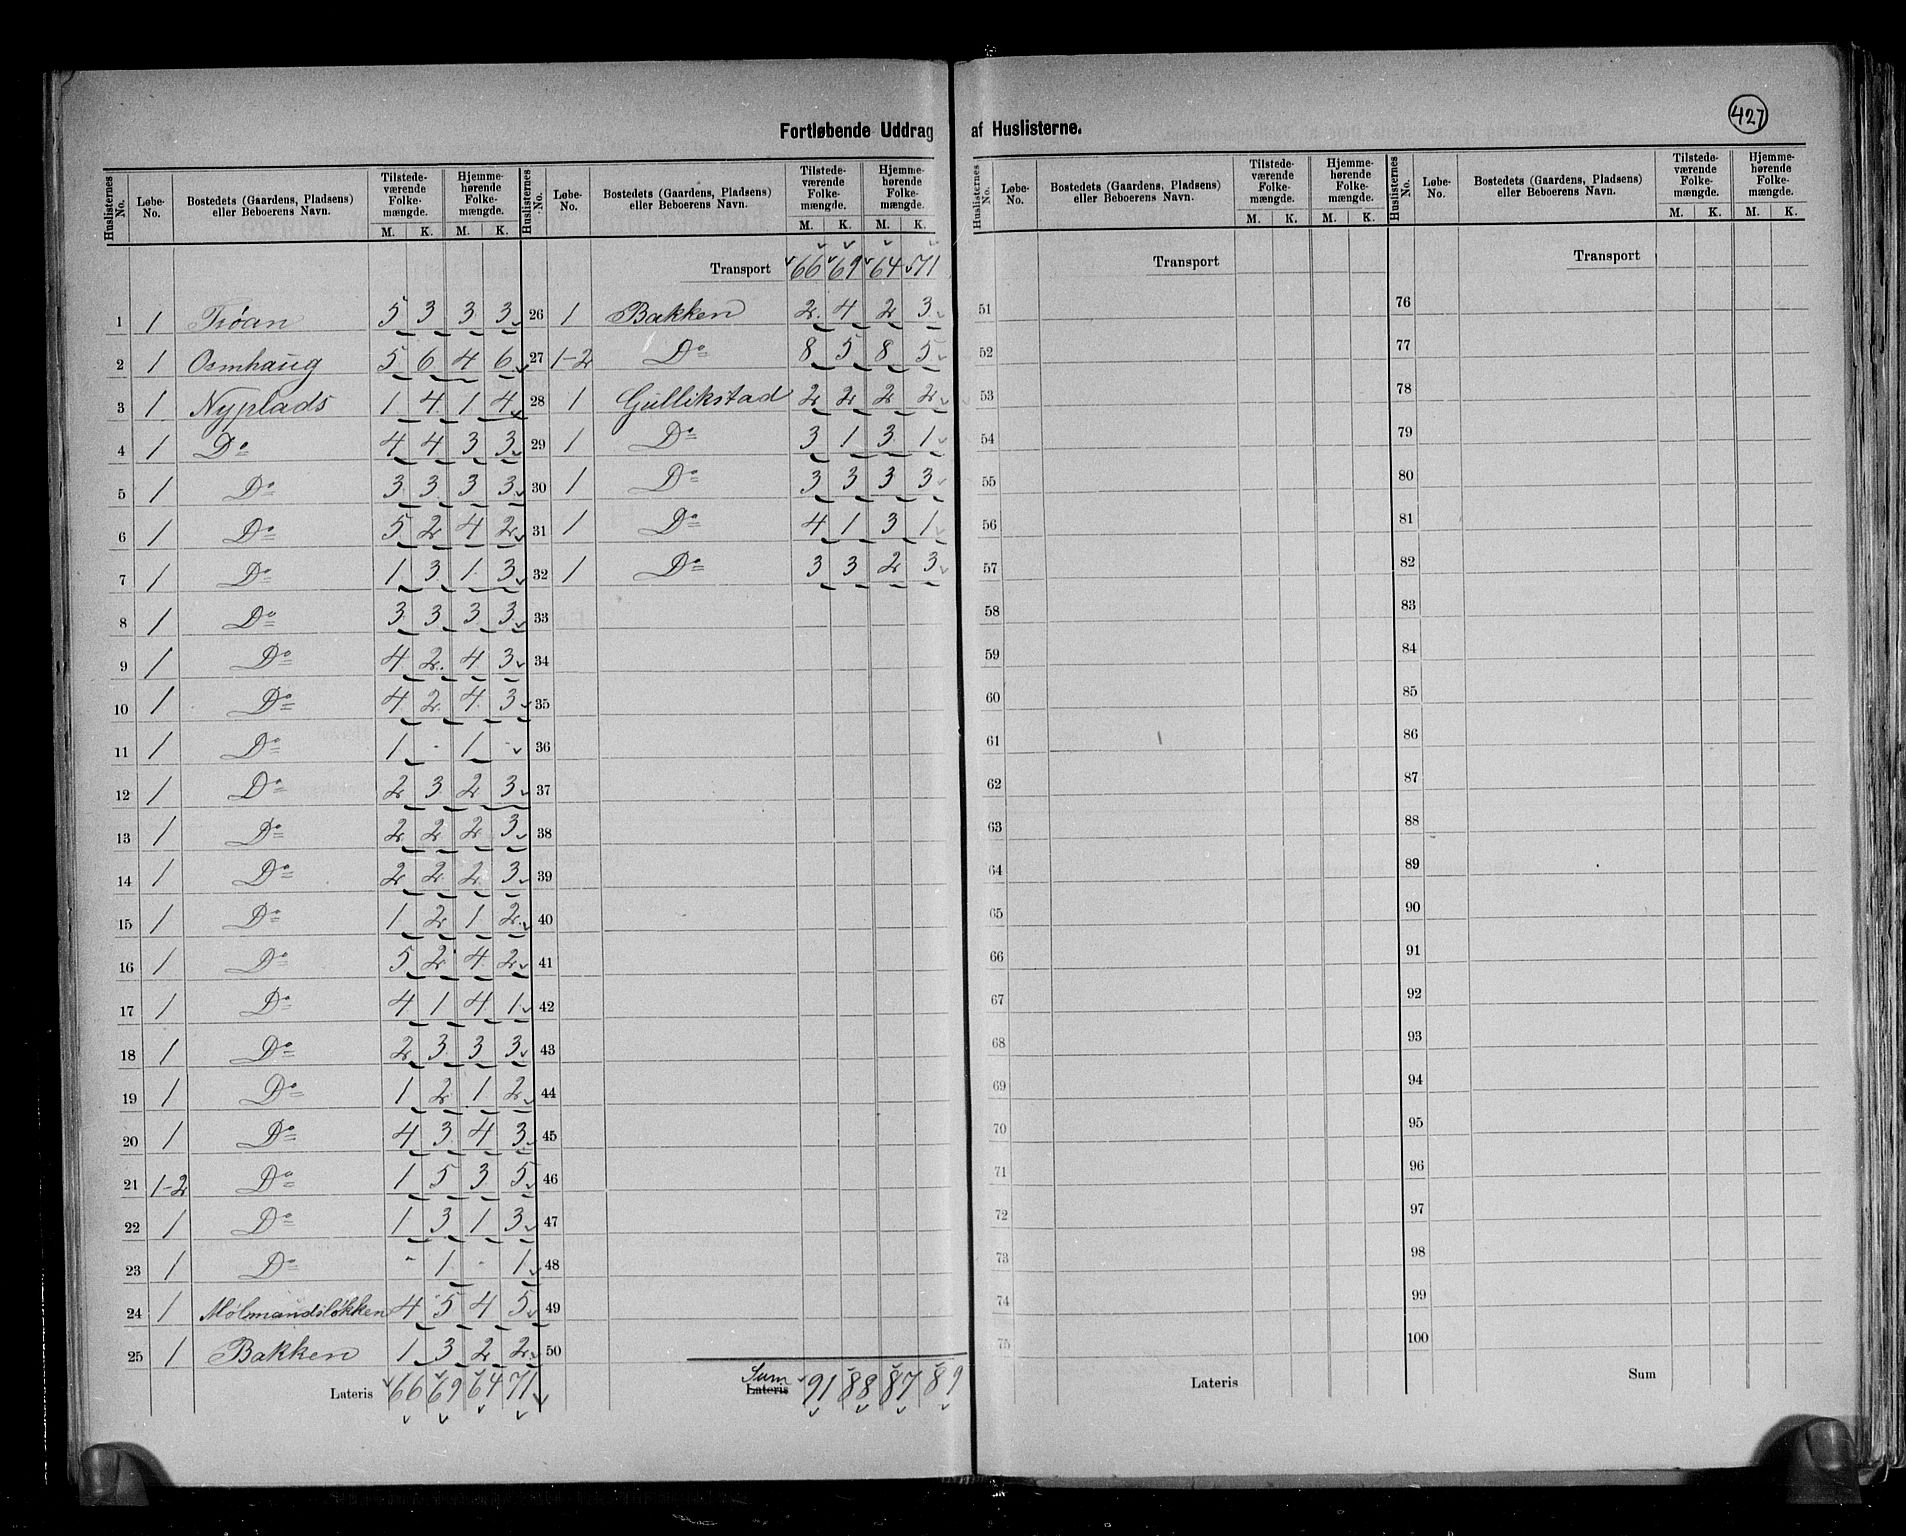 427
Fortløbende Uddrag af Huslisterne.
Huslisternes No. | Løbe-No. | Bostedets (Gaardens, Pladsens) eller Beboerens Navn. | Tilstede-værende Folke-mængde. M. K. | Hjemme-hørende Folke-mængde. M. K.
1 | 1 | Trøan | 5 | 3 | 3 | 3
2 | 1 | Osmhaug | 5 | 6 | 4 | 6
3 | 1 | Nyplads | 1 | 4 | 1 | 4
4 | 1 | Do | 4 | 4 | 3 | 3
5 | 1 | Do | 3 | 3 | 3 | 3
6 | 1 | Do | 5 | 2 | 4 | 2
7 | 1 | Do | 1 | 3 | 1 | 3
8 | 1 | Do | 3 | 3 | 3 | 3
9 | 1 | Do | 4 | 2 | 4 | 3
10 | 1 | Do | 4 | 2 | 4 | 3
11 | 1 | Do | 1 | - | 1 | -
12 | 1 | Do | 2 | 3 | 2 | 3
13 | 1 | Do | 2 | 2 | 2 | 3
14 | 1 | Do | 2 | 2 | 2 | 3
15 | 1 | Do | 1 | 2 | 1 | 2
16 | 1 | Do | 5 | 2 | 4 | 2
17 | 1 | Do | 4 | 1 | 4 | 1
18 | 1 | Do | 2 | 3 | 3 | 3
19 | 1 | Do | 1 | 2 | 1 | 2
20 | 1 | Do | 4 | 3 | 4 | 3
21 | 1-2 | Do | 1 | 5 | 3 | 5
22 | 1 | Do | 1 | 3 | 1 | 3
23 | 1 | Do | - | 1 | - | 1
24 | 1 | Mølmandsløkken | 4 | 5 | 4 | 5
25 | 1 | Bakken | 1 | 3 | 2 | 2
Lateris 66 69 64 71
Huslisternes No. | Løbe-No. | Bostedets (Gaardens, Pladsens) eller Beboerens Navn. | Tilstede-værende Folke-mængde. M. K. | Hjemme-hørende Folke-mængde. M. K.
Transport 66 69 64 71
26 | 1 | Bakken | 2 | 4 | 2 | 3
27 | 1-2 | Do | 8 | 5 | 8 | 5
28 | 1 | Gullikstad | 2 | 2 | 2 | 2
29 | 1 | Do | 3 | 1 | 3 | 1
30 | 1 | Do | 3 | 3 | 3 | 3
31 | 1 | Do | 4 | 1 | 3 | 1
32 | 1 | Do | 3 | 3 | 2 | 3
33
34
35
36
37
38
39
40
41
42
43
44
45
46
47
48
49
50
Sum
Lateris 91 88 87 89
Huslisternes No. | Løbe-No. | Bostedets (Gaardens, Pladsens) eller Beboerens Navn. | Tilstede-værende Folke-mængde. M. K. | Hjemme-hørende Folke-mængde. M. K.
Transport
51
52
53
54
55
56
57
58
59
60
61
62
63
64
65
66
67
68
69
70
71
72
73
74
75
Lateris
Huslisternes No. | Løbe-No. | Bostedets (Gaardens, Pladsens) eller Beboerens Navn. | Tilstede-værende Folke-mængde. M. K. | Hjemme-hørende Folke-mængde. M. K.
Transport
76
77
78
79
80
81
82
83
84
85
86
87
88
89
90
91
92
93
94
95
96
97
98
99
100
Sum